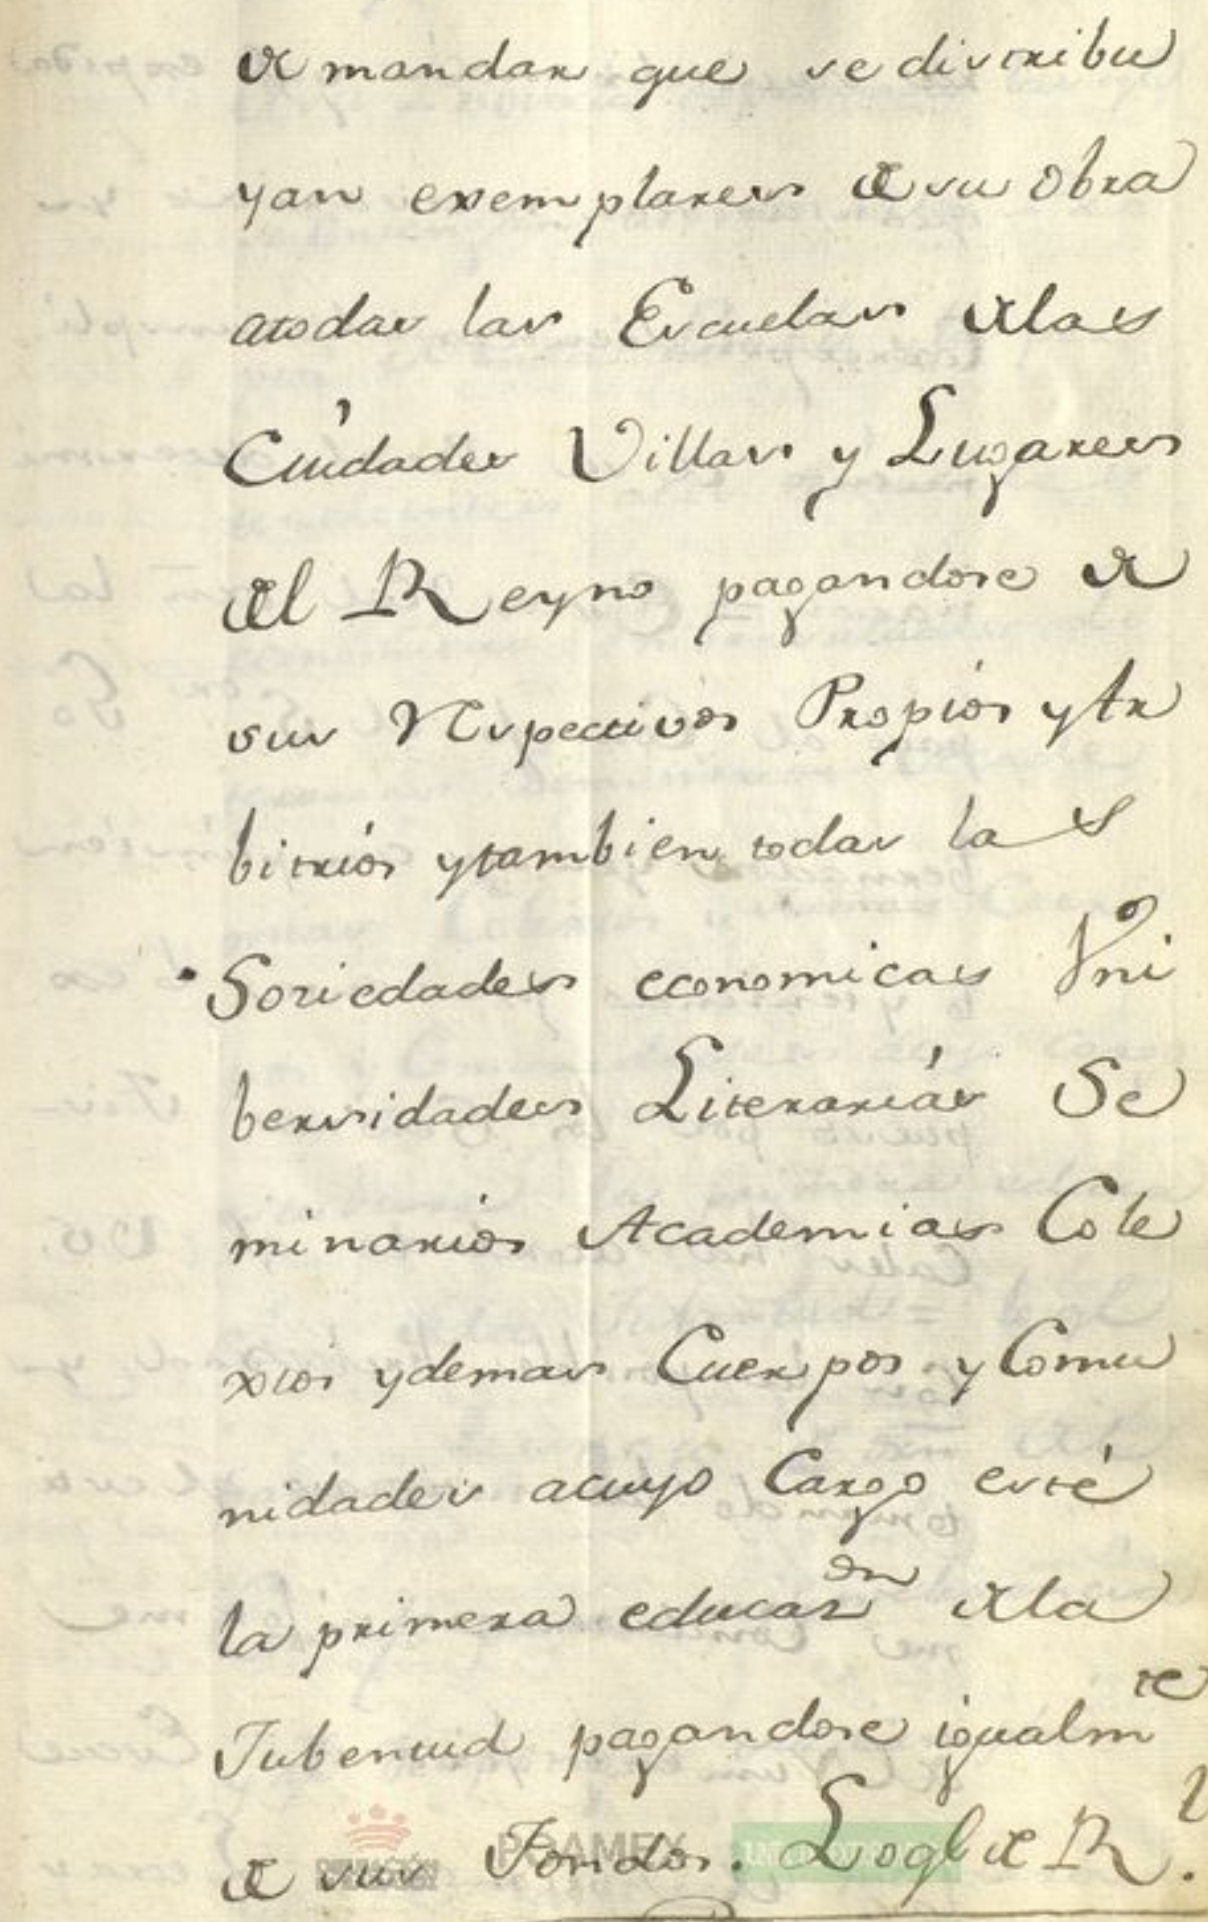 de mandar que se distribu
yan exemplares de su obra
atodas las Escuelas delas
Ciudades Villas y Lugares
del Reyno pagandose de
sus Respectivos Propiós yAr
bitriós ytambien todas las
Soziedades economicas Vni
bersidades Literariás Se
minariós Academias Cole
xios ydemas Cuerpos y Comu
nidades acuyo Cargo esté
la primera educaz.on dela
Jubentud pagandose igualmte
de sus Fondos. Loql de Rl.